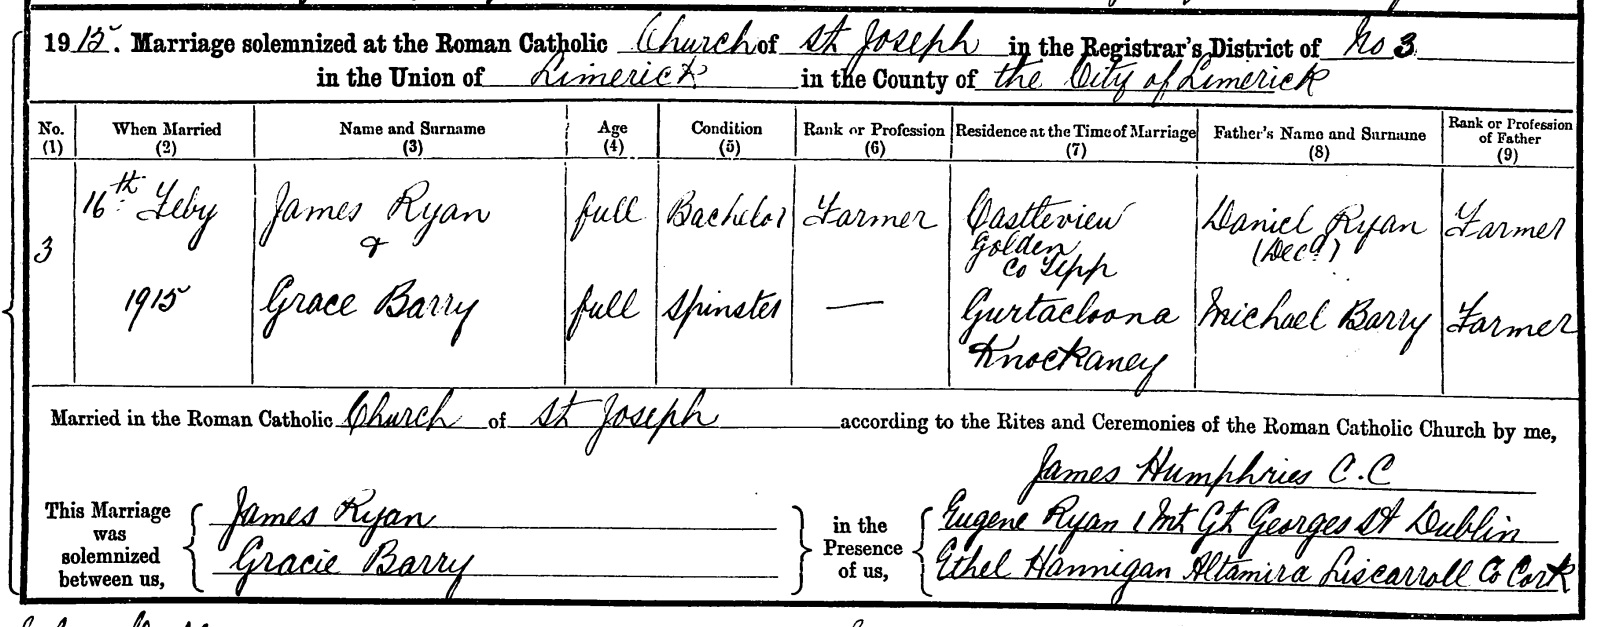 1915. Marriage solemnized at the Roman Catholic Church of St Joseph in the Registrar's District of No 3
in the Union of Limerick in the County of the City of Limerick
No. (1) When Married (2) Name and Surname (3) Age (4) Condition (5) Rank or Profession (6) Residence at the Time of Marriage (7) Father's Name and Surname (8) Rank or Profession of Father (9)
3
16th Feby
1915
James Ryan
&
Grace Barry
full
full
Bachelor
Spinster
Farmer
—
Castleview
Golden
Co Tipp
Gurtacloona
Knockaney
Daniel Ryan
(Decd)
Michael Barry
Farmer
Farmer
Married in the Roman Catholic Church of St Joseph according to the Rites and Ceremonies of the Roman Catholic Church by me,
James Humphries C.C
This Marriage was solemnized between us,
James Ryan
Gracie Barry
in the Presence of us,
Eugene Ryan 1 Mt Gt Georges St Dublin
Ethel Hannigan Altamira Liscarroll Co Cork